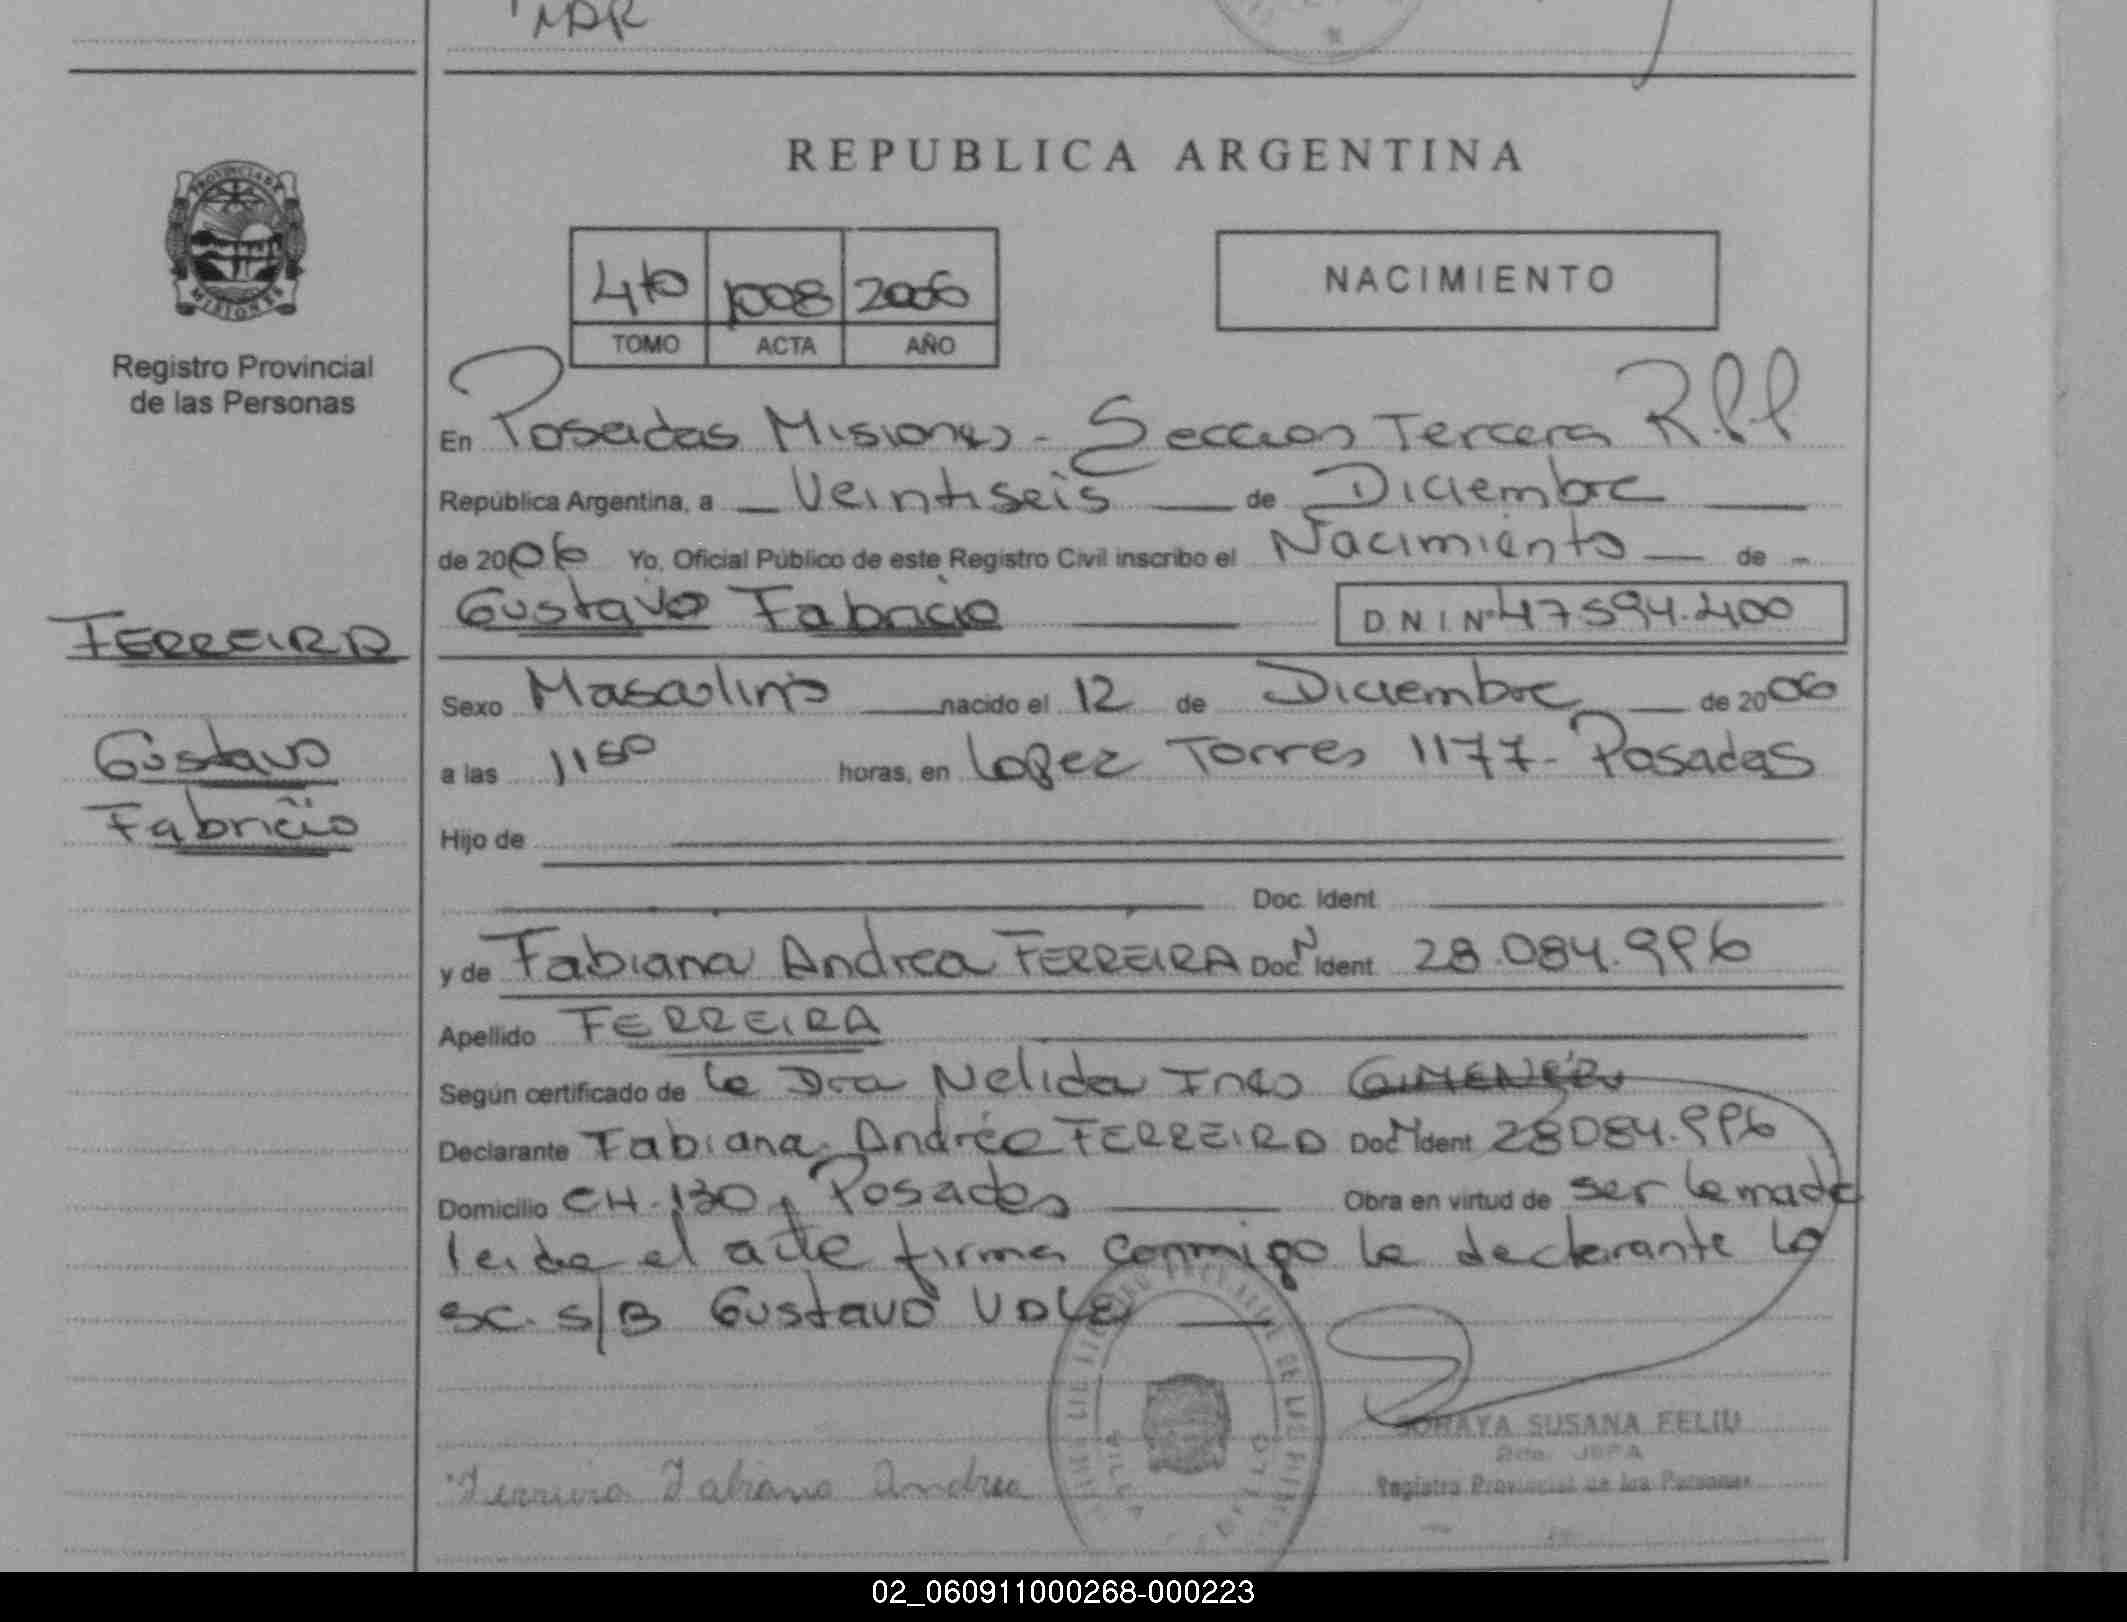 REPUBLICA ARGENTINA
PROVINCIA DE
MISIONES
Registro Provincial
de las Personas
4to 1008 2006
TOMO ACTA AÑO
NACIMIENTO
En Posadas Misiones - Seccion Tercera R.P.P
República Argentina, a Veintiseis de Diciembre
de 2006 Yo, Oficial Público de este Registro Civil inscribo el Nacimiento de
Gustavo Fabricio D N I Nº 47594.400
FERREIRA
Sexo Masculino nacido el 12 de Diciembre de 2006
Gustavo
a las 1150 horas, en Lopez Torres 1177 - Posadas
Fabricio
Hijo de
Doc. Ident
y de Fabiana Andrea FERREIRA Doc. N Ident 28.084.996
Apellido FERREIRA
Según certificado de la Dra Nelida Ines GIMENEZ
Declarante Fabiana Andrea FERREIRA Doc N Ident 28084.996
Domicilio CH. 130, Posadas Obra en virtud de ser la madre
leida el acta firma conmigo la declarante lo
SC. S/B Gustavo VALE
SORAYA SUSANA FELIU
JEFA
Registro Provincial de las Personas
Ferreira Fabiana Andrea
02_060911000268-000223